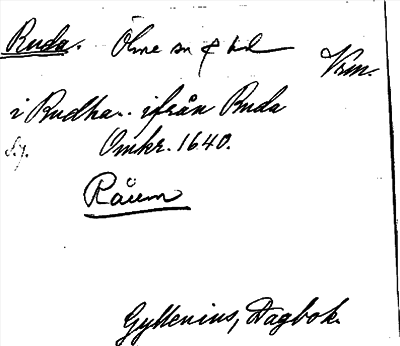 Ruda. Ölme sn & hd
Vrm.
i Rudha.. ifrån Ruda
Omkr. 1640.
Råum
Gyllenius, Dagbok.